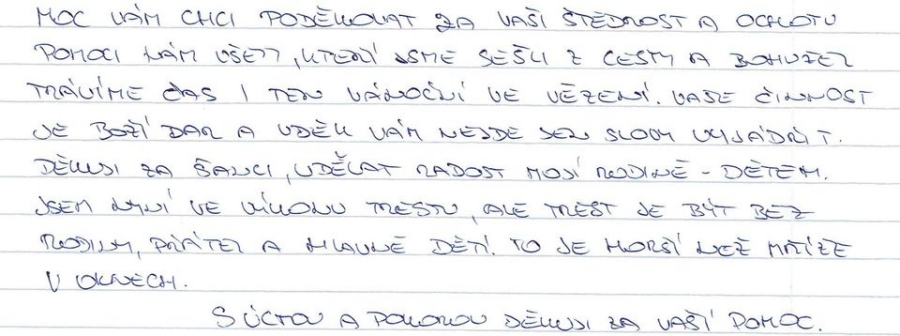 MOC VÁM CHCI PODĚKOVAT ZA VAŠÍ ŠTĚDROST A OCHOTU
POMOCI NÁM VŠEM, KTEŘÍ JSME SEŠLI Z CESTY A BOHUŽEL
TRÁVÍME ČAS I TEN VÁNOČNÍ VE VĚZENÍ. VAŠE ČINNOST
JE BOŽÍ DAR A VDĚK VÁM NEJDE JEN SLOVY VYJÁDŘIT.
DĚKUJI ZA ŠANCI, UDĚLAT RADOST MOJÍ RODINĚ - DĚTEM.
JSEM NYNÍ VE VÝKONU TRESTU, ALE TREST JE BÝT BEZ
RODINY, PŘÁTEL A HLAVNĚ DĚTÍ. TO JE HORŠÍ NEŽ MŘÍŽE
V OKNECH.
S ÚCTOU A POKOROU DĚKUJI ZA VAŠÍ POMOC.